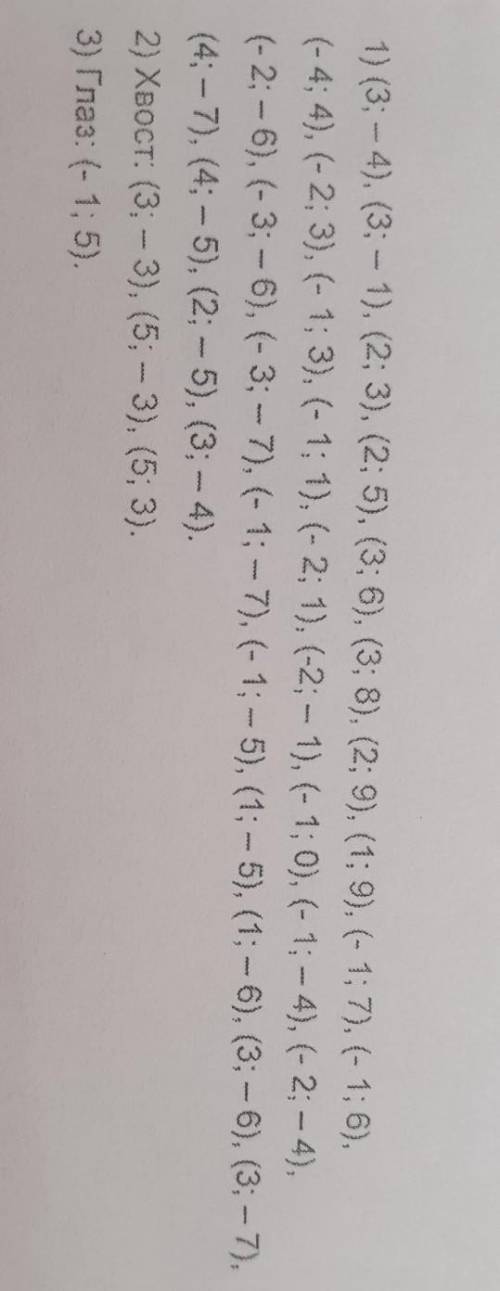 1) (3; – 4), (3; – 1), (2; 3), (2; 5), (3; 6), (3; 8), (2; 9), (1; 9), (- 1; 7), (- 1; 6),
(- 4; 4), (- 2; 3), (- 1; 3), (- 1; 1), (- 2; 1), (-2; – 1), (- 1; 0), (- 1; – 4), (- 2; – 4),
(- 2; – 6), (- 3; – 6), (- 3; – 7), (- 1; – 7), (- 1; – 5), (1; – 5), (1; – 6), (3; – 6), (3; – 7),
(4; – 7), (4; – 5), (2; – 5), (3; – 4).
2) Хвост: (3; – 3), (5; – 3), (5; 3).
3) Глаз: (- 1; 5).